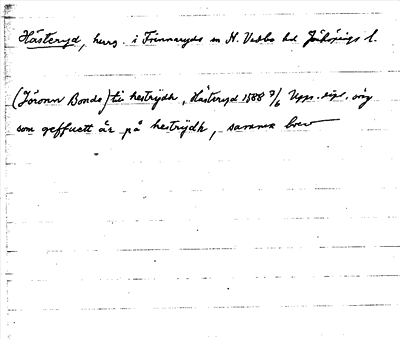 Hästeryd, herrg. i Frinnaryds sn N. Vedbo hd Jönköpings l.
(Jöronn Bonde) till hestrijdh, Hästeryd 1588 7/6 Upps. dipl. orig
som geffuett är på hestrijdh, samma brev